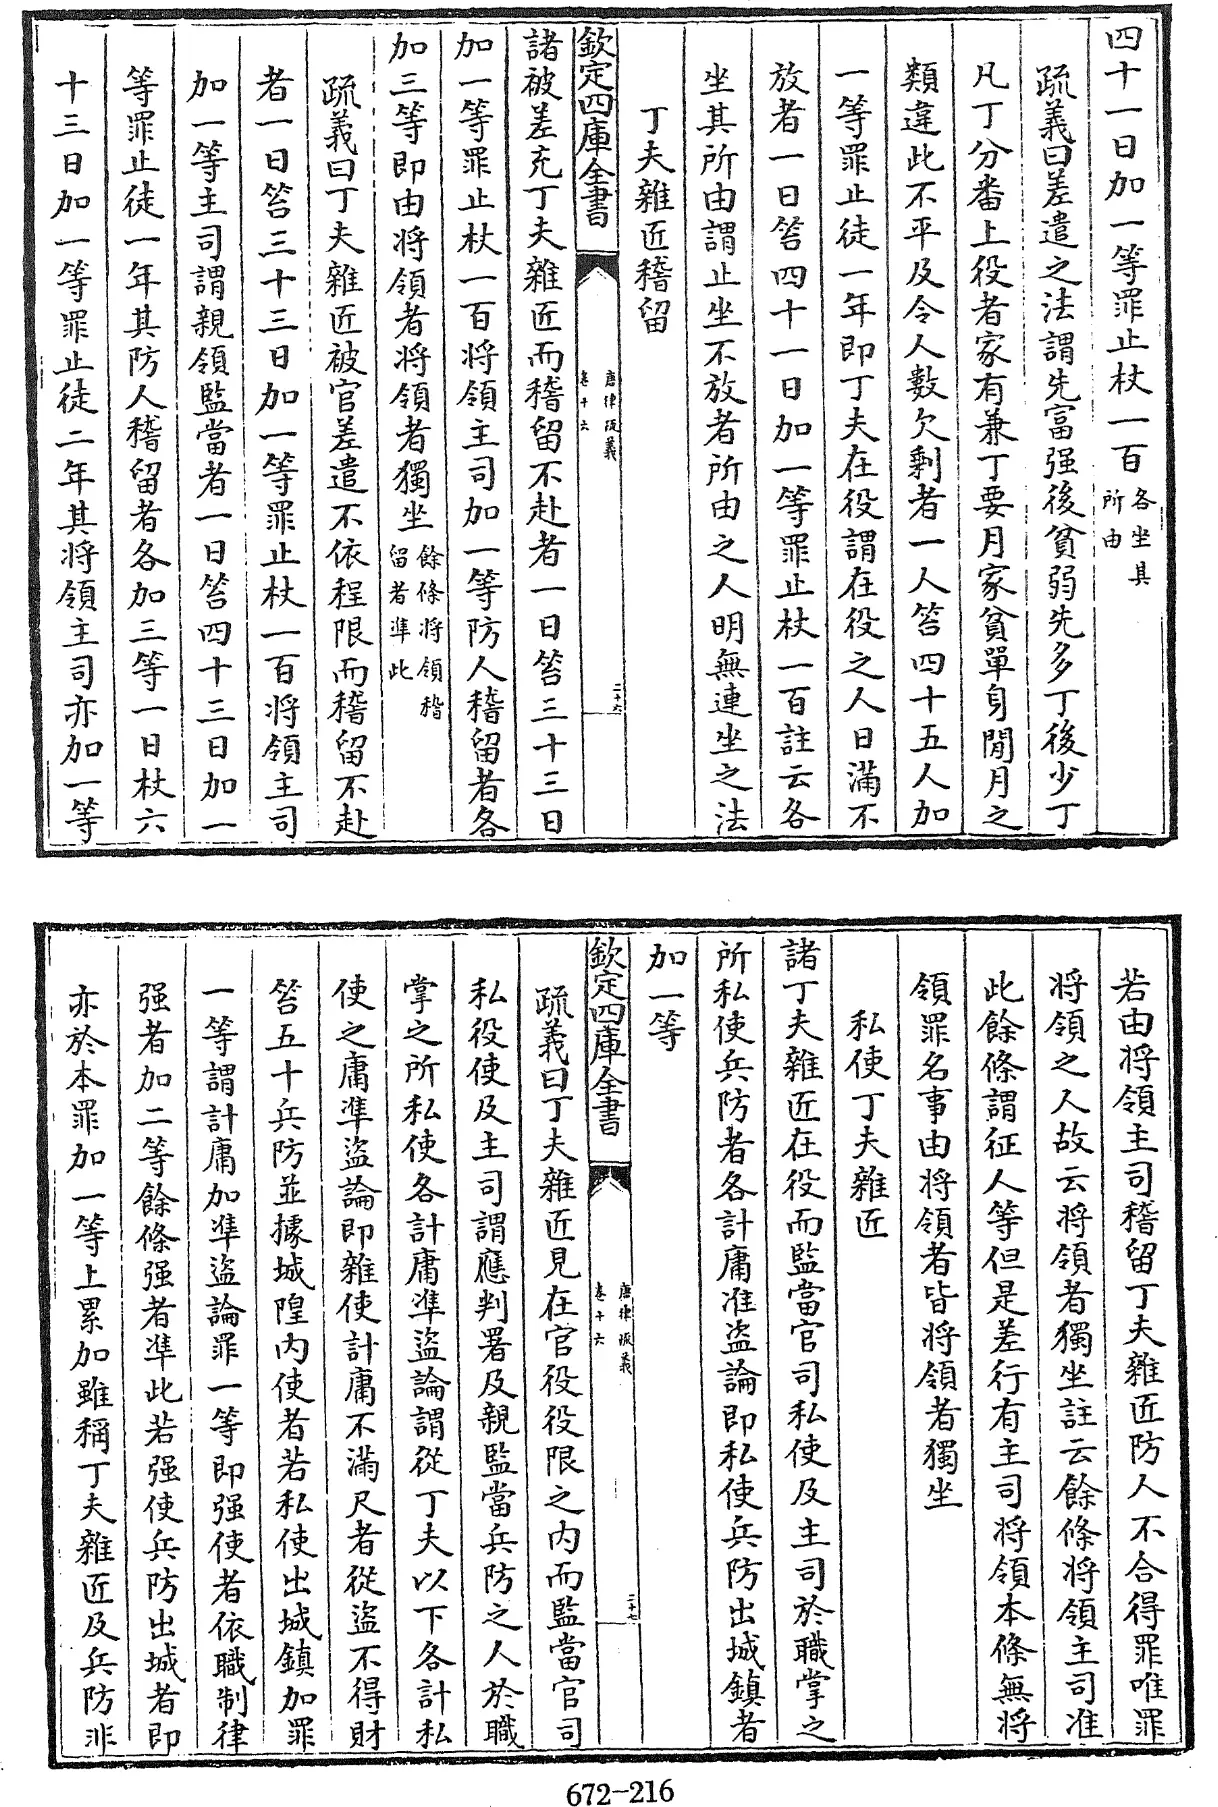 四十一日加一等罪止杖一百各坐其所由
疏義曰差遣之法謂先富强後貧弱先多丁後少丁
凡丁分番上役者家有兼丁要月家貧單身閒月之
類違此不平及令人數欠剩者一人笞四十五人加
一等罪止徒一年即丁夫在役謂在役之人日滿不
放者一日笞四十一日加一等罪止杖一百註云各
坐其所由謂止坐不放者所由之人明無連坐之法
丁夫雜匠稽留
欽定四庫全書
唐律疏義
卷十六
二十六
諸被差充丁夫雜匠而稽留不赴者一日笞三十三日
加一等罪止杖一百將領主司加一等防人稽留者各
加三等即由將領者將領者獨坐餘條將領稽留者準此
疏義曰丁夫雜匠被官差遣不依程限而稽留不赴
者一日笞三十三日加一等罪止杖一百將領主司
加一等主司謂親領監當者一日笞四十三日加一
等罪止徒一年其防人稽留者各加三等一日杖六
十三日加一等罪止徒二年其將領主司亦加一等
若由將領主司稽留丁夫雜匠防人不合得罪唯罪
將領之人故云將領者獨坐註云餘條將領主司准
此餘條謂征人等但是差行有主司將領本條無將
領罪名事由將領者皆將領者獨坐
私使丁夫雜匠
諸丁夫雜匠在役而監當官司私使及主司於職掌之
所私使兵防者各計庸准盜論即私使兵防出城鎮者
加一等
欽定四庫全書
唐律疏義
卷十六
二十七
疏義曰丁夫雜匠見在官役役限之内而監當官司
私役使及主司謂應判署及親監當兵防之人於職
掌之所私使各計庸準盜論謂從丁夫以下各計私
使之庸準盜論即雜使計庸不滿尺者從盜不得財
笞五十兵防並據城隍内使者若私使出城鎮加罪
一等謂計庸加準盜論罪一等即强使者依職制律
强者加二等餘條强者準此若强使兵防出城者即
亦於本罪加一等上累加雖稱丁夫雜匠及兵防非
672-216